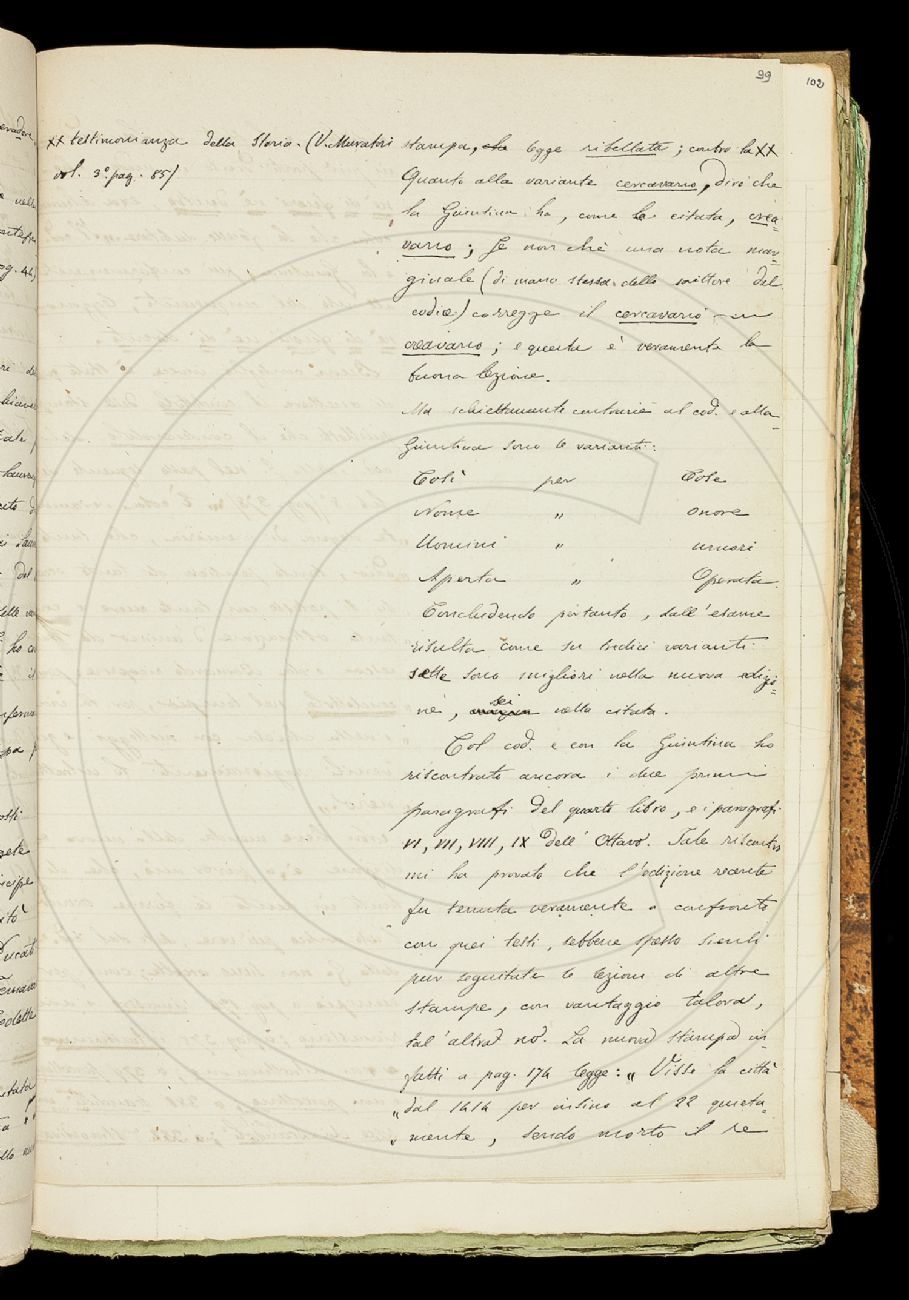 99
102
XX testimonianza della Storia. (V. Muratori
vol. 3º pag. 85)
stampa, che legge ribellate; contro la XX
Quanto alla variante cercavano, dirò che
la Giuntina ha, come la citata, crea-
vano; Se non chè una nota mar-
ginale (di mano stessa dello scrittore del
codice) corregge il cercavano in
creavano; e questa è veramente la
buona lezione.
Ma schiettamente contrarie al cod. e alla
Giuntina sono le varianti:
Così per Cose
Nome " onore
Uomini " umori
Aperta " Operata
Concludendo pertanto, dall'esame
risulta come su tredici varianti
sette sono migliori nella nuova edizio-
ne, sei nella citata.
Col cod. e con la Giuntina ho
riscontrato ancora i due primi
paragrafi del quarto libro, e i paragrafi
VI, VII, VIII, IX dell'Ottavo. Tale riscontro
mi ha provato che l'edizione recente
fu tenuta veramente a confronto
con quei testi, sebbene spesso siensi
pur seguitate le lezioni di altre
stampe, con vantaggio talora,
tal'altra no. La nuova stampa in-
fatti a pag. 174 legge: " Visse la città
" dal 1414 per insino al 22 quieta-
" mente, sendo morto il re